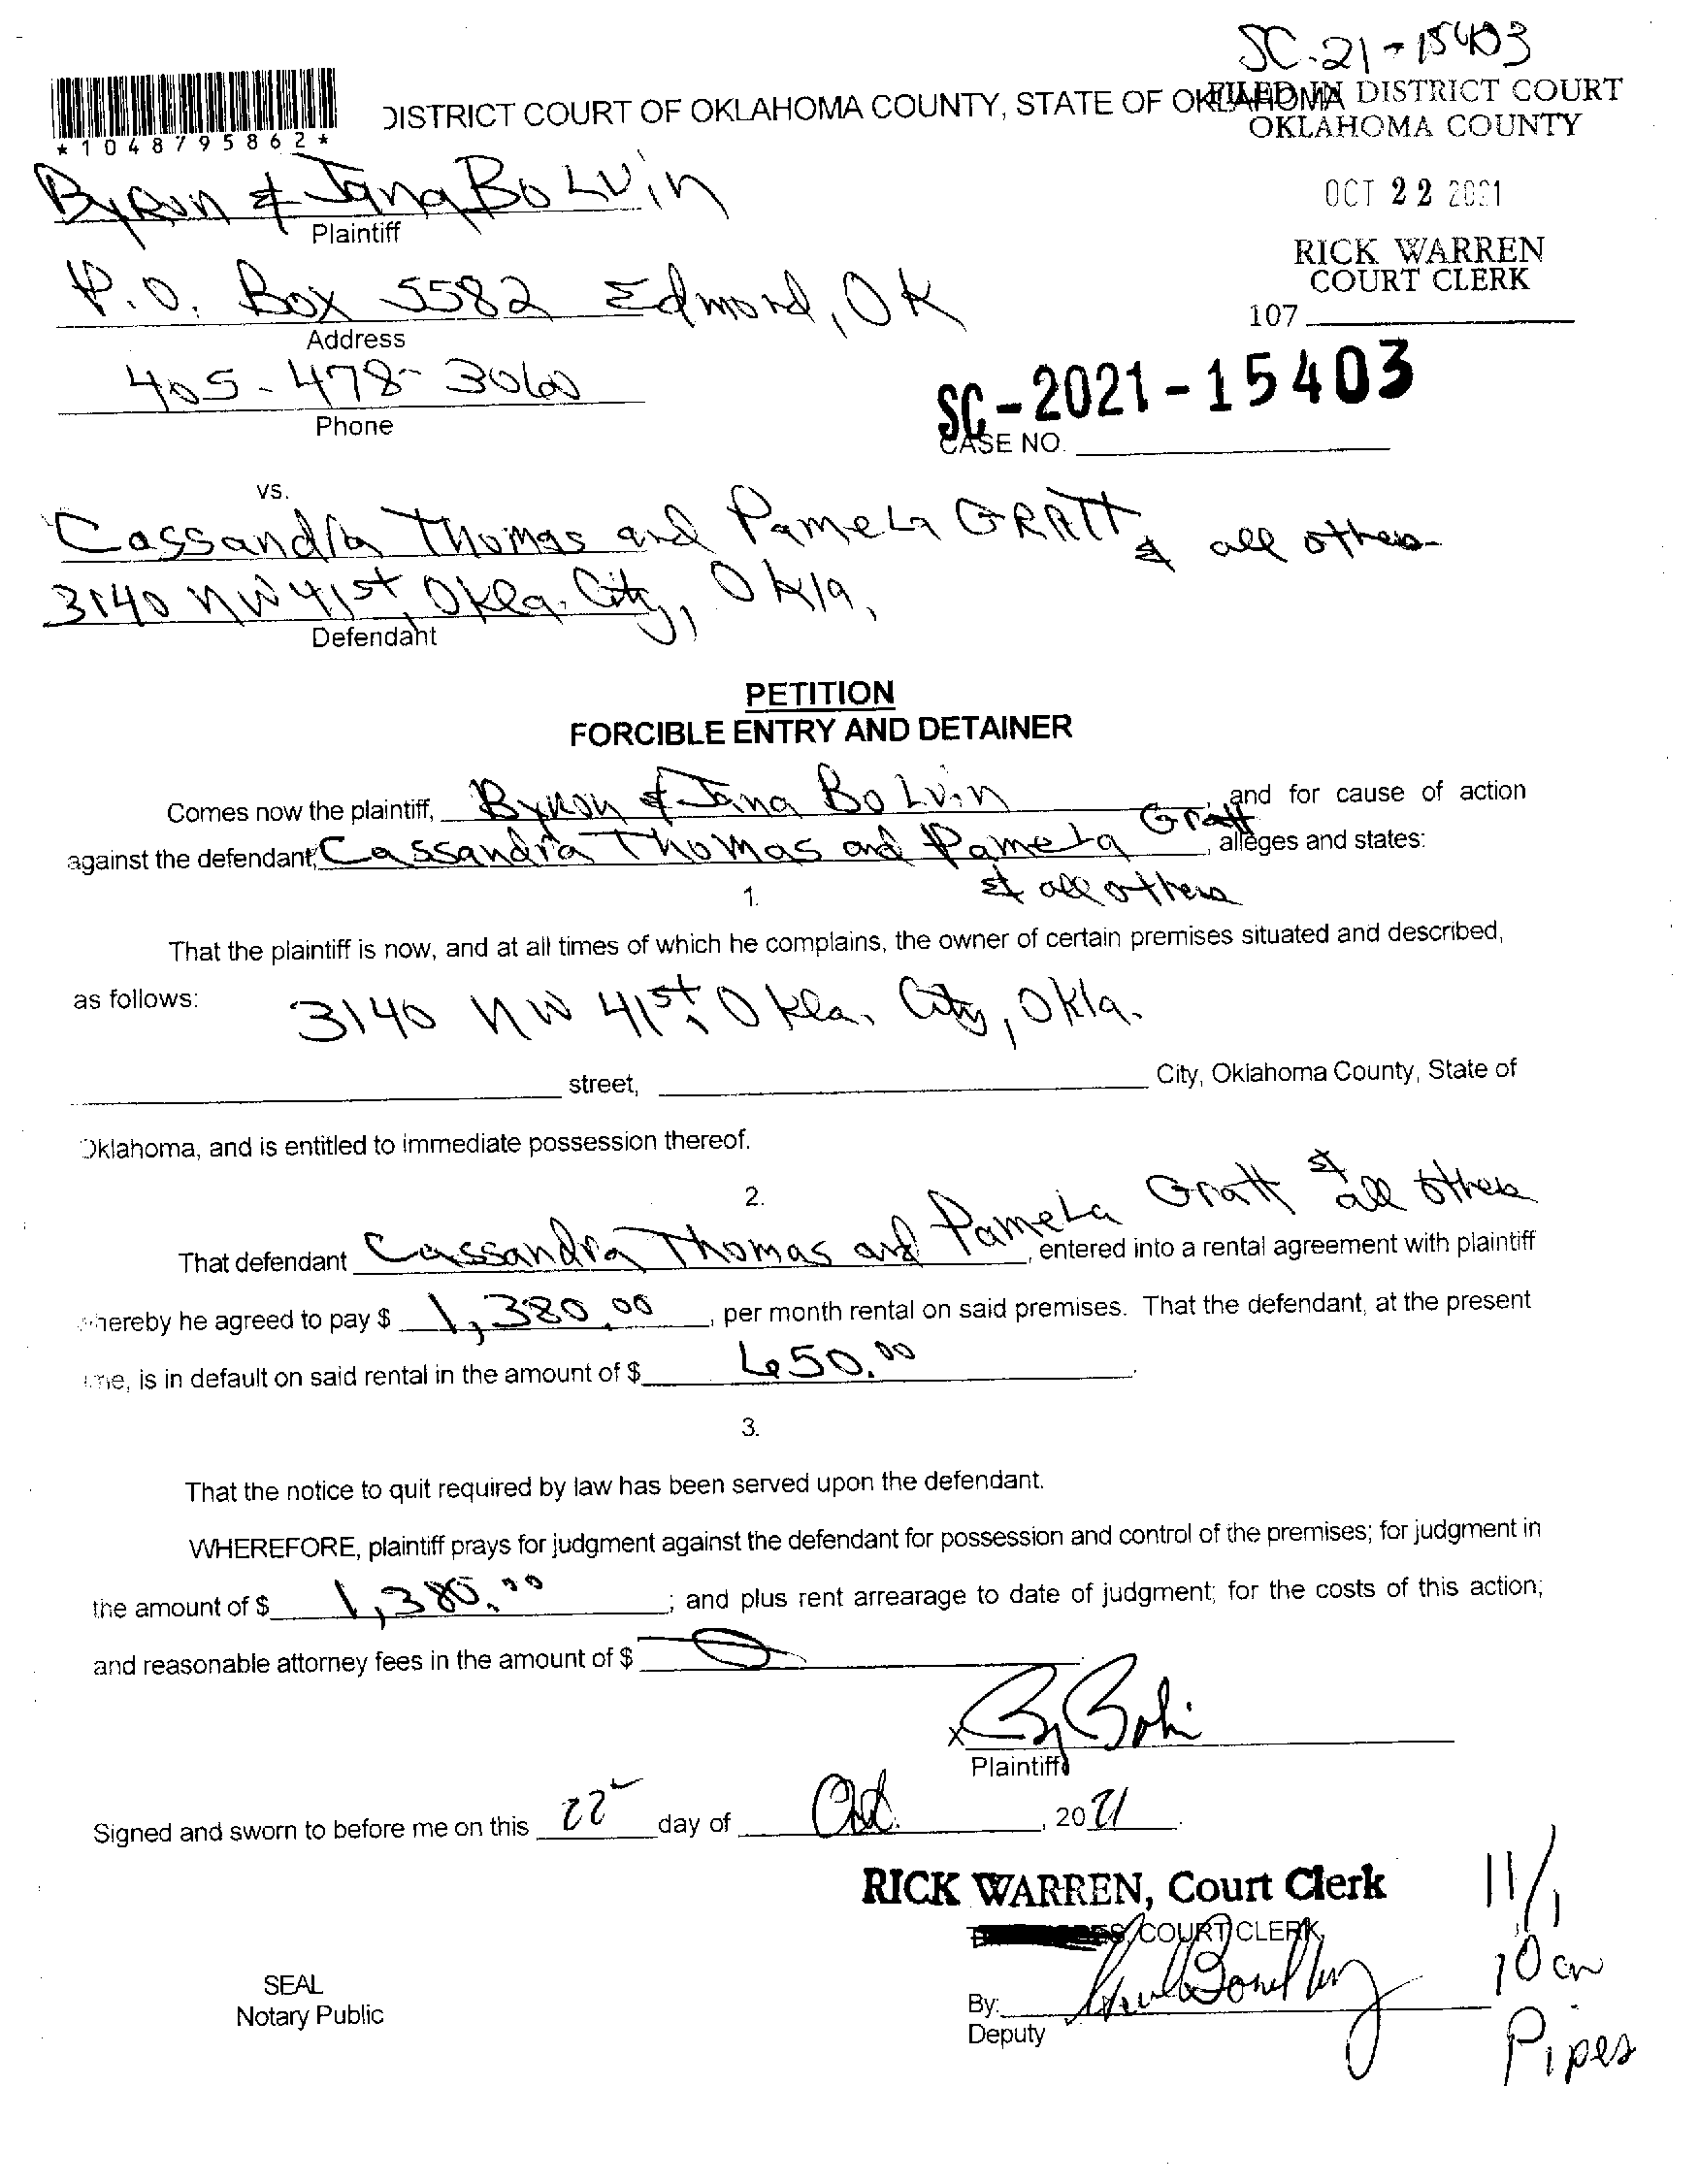 SC-21-15403
DISTRICT COURT OF OKLAHOMA COUNTY, STATE OF OKLAHOMA
FILED IN DISTRICT COURT
OKLAHOMA COUNTY
*1048795862*
OCT 22 2021
RICK WARREN
COURT CLERK
107
Byron & Jana BoLvin
Plaintiff
P.O. Box 5582 Edmond, OK
Address
405-478-3060
Phone
SC-2021-15403
CASE NO.
vs.
Cassandra Thomas and Pamela GRATT & all others
3140 NW 41st, Okla. City, Okla,
Defendant
PETITION
FORCIBLE ENTRY AND DETAINER
Comes now the plaintiff, Byron & Jana BoLvin, and for cause of action
against the defendant, Cassandra Thomas and Pamela Gratt, alleges and states:
& all others
1.
That the plaintiff is now, and at all times of which he complains, the owner of certain premises situated and described,
as follows: 3140 NW 41st, Okla. City, Okla.
street, City, Oklahoma County, State of
Oklahoma, and is entitled to immediate possession thereof.
2.
That defendant Cassandra Thomas and Pamela Gratt & all others, entered into a rental agreement with plaintiff
hereby he agreed to pay $ 1,380.00, per month rental on said premises. That the defendant, at the present
me, is in default on said rental in the amount of $ 650.00.
3.
That the notice to quit required by law has been served upon the defendant.
WHEREFORE, plaintiff prays for judgment against the defendant for possession and control of the premises; for judgment in
the amount of $ 1,380.00; and plus rent arrearage to date of judgment; for the costs of this action;
and reasonable attorney fees in the amount of $ 0.
X
Plaintiff
Signed and sworn to before me on this 22 day of Oct., 2021.
RICK WARREN, Court Clerk
COURT CLERK
SEAL
Notary Public
By:
Deputy
11/1
10 am
Pipes